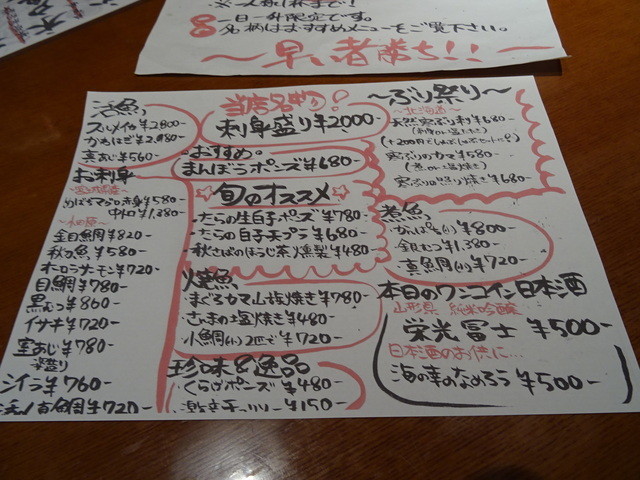 ※一人様1杯まで!
一日一升限定です。
銘柄はおすすめメニューをご覧下さい。
〜早い者勝ち!!〜
活魚
スルメイカ ¥2,800-
かわはぎ ¥2,980-
真あじ ¥560-
お刺身
めばちマグロ赤身 ¥580-
中トロ ¥1,280-
金目鯛 ¥820-
秋刀魚 ¥580-
オーロラサーモン ¥720-
目鯛 ¥780-
黒むつ ¥860-
イサキ ¥720-
室あじ ¥780-
姿盛り
シイラ ¥760-
真鯛 ¥720-
当店名物!
刺身盛り ¥2000-
おすすめ。
まんぼうポンズ ¥680-
☆旬のオススメ☆
・たらの生白子ポンズ ¥780-
・たらの白子天プラ ¥680-
・秋さばのほうじ茶燻製 ¥480-
焼魚
・まぐろカマ山塩焼き ¥780-
・さんまの塩焼き ¥480-
・小鯛(小)2匹で ¥720-
珍味&逸品
・くらげポンズ ¥480-
¥150-
〜ぶり祭り〜
〜北海道〜
天然寒ぶり刺 ¥680-
寒ぶりのカマ ¥580-
寒ぶり照り焼き ¥680-
煮魚
¥800-
・銀むつ ¥1,380-
・真鯛(小) ¥720-
本日のワンコイン日本酒
山形県 純米吟醸
栄光冨士 ¥500-
日本酒のお供に…
海の幸のなめろう ¥500-